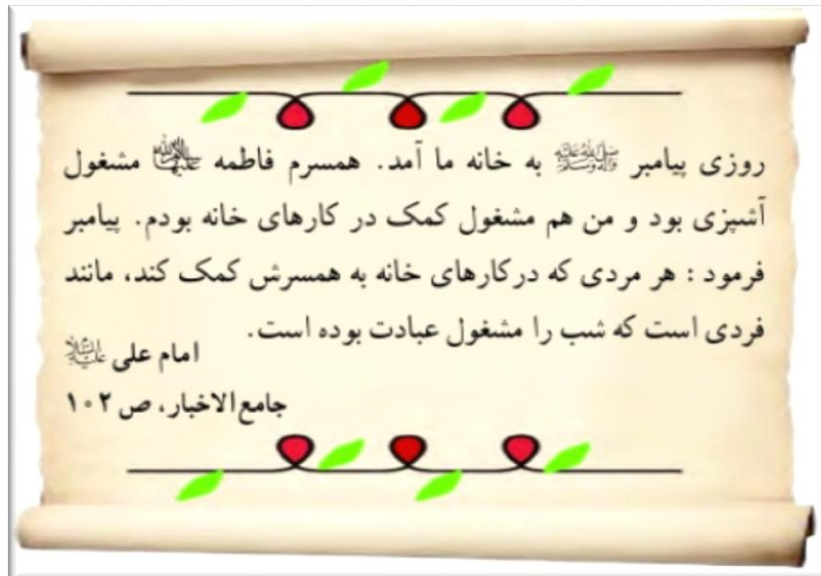 روزی پیامبر ﷺ به خانه ما آمد. همسرم فاطمه علیها‌السلام مشغول
آشپزی بود و من هم مشغول کمک در کارهای خانه بودم. پیامبر
فرمود : هر مردی که درکارهای خانه به همسرش کمک کند، مانند
فردی است که شب را مشغول عبادت بوده است.
امام علی علیه‌السلام
جامع‌الاخبار، ص ۱۰۲